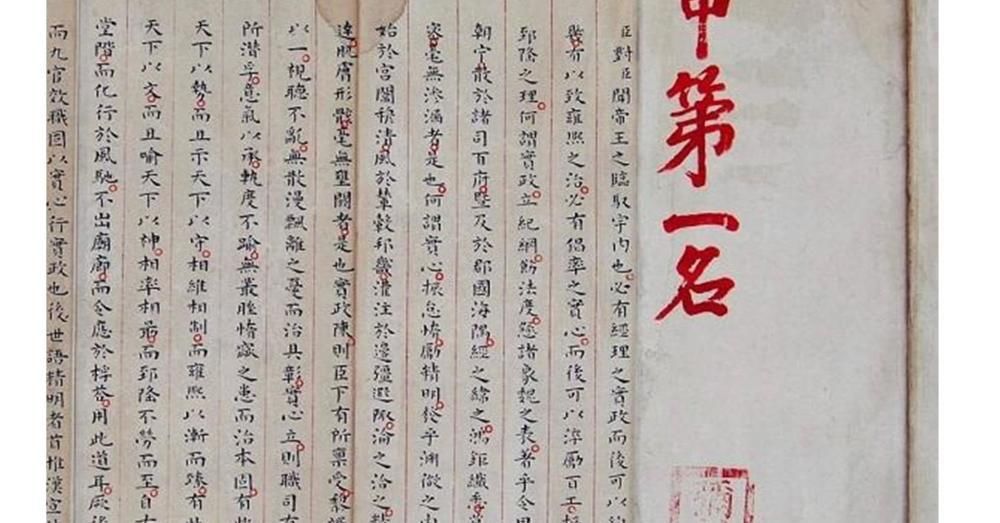 甲第一名
臣對臣聞帝王之臨馭宇內也必有經理之實政而後可以約
有以致雍熙之治必有倡率之實心而後可以淬勵百工振
郅隆之理何謂實政立紀綱飭法度懸諸象魏之表著乎令甲
朝宁散於諸司百府暨及於郡國海隅經之緯之鴻鉅纖悉莫
密毫無滲漏者是也何謂實心振怠惰勵精明發乎淵微之內
始於宮闈穆清風於輦轂邦畿灌注於邊疆遐陬淪之洽之精
達肌膚形骸毫無壅閼者是也實政陳則臣下有所稟受黎氓
以一視聽不亂無散漫飄離之憂而治具彰實心立則職司有
所潛孚意氣以承軌度不踰無叢脞惰窳之患而治本固有此
天下以勢而且示天下以守相維相制而雍熙以漸而臻有此
天下以文而且喻天下以神相率相勗而郅隆不勞而至自古
堂階而化行於風馳不出廟廊而令應於桴答用此道耳厥後
而九官效職固以實心行實政也後世語精明者首推漢宣